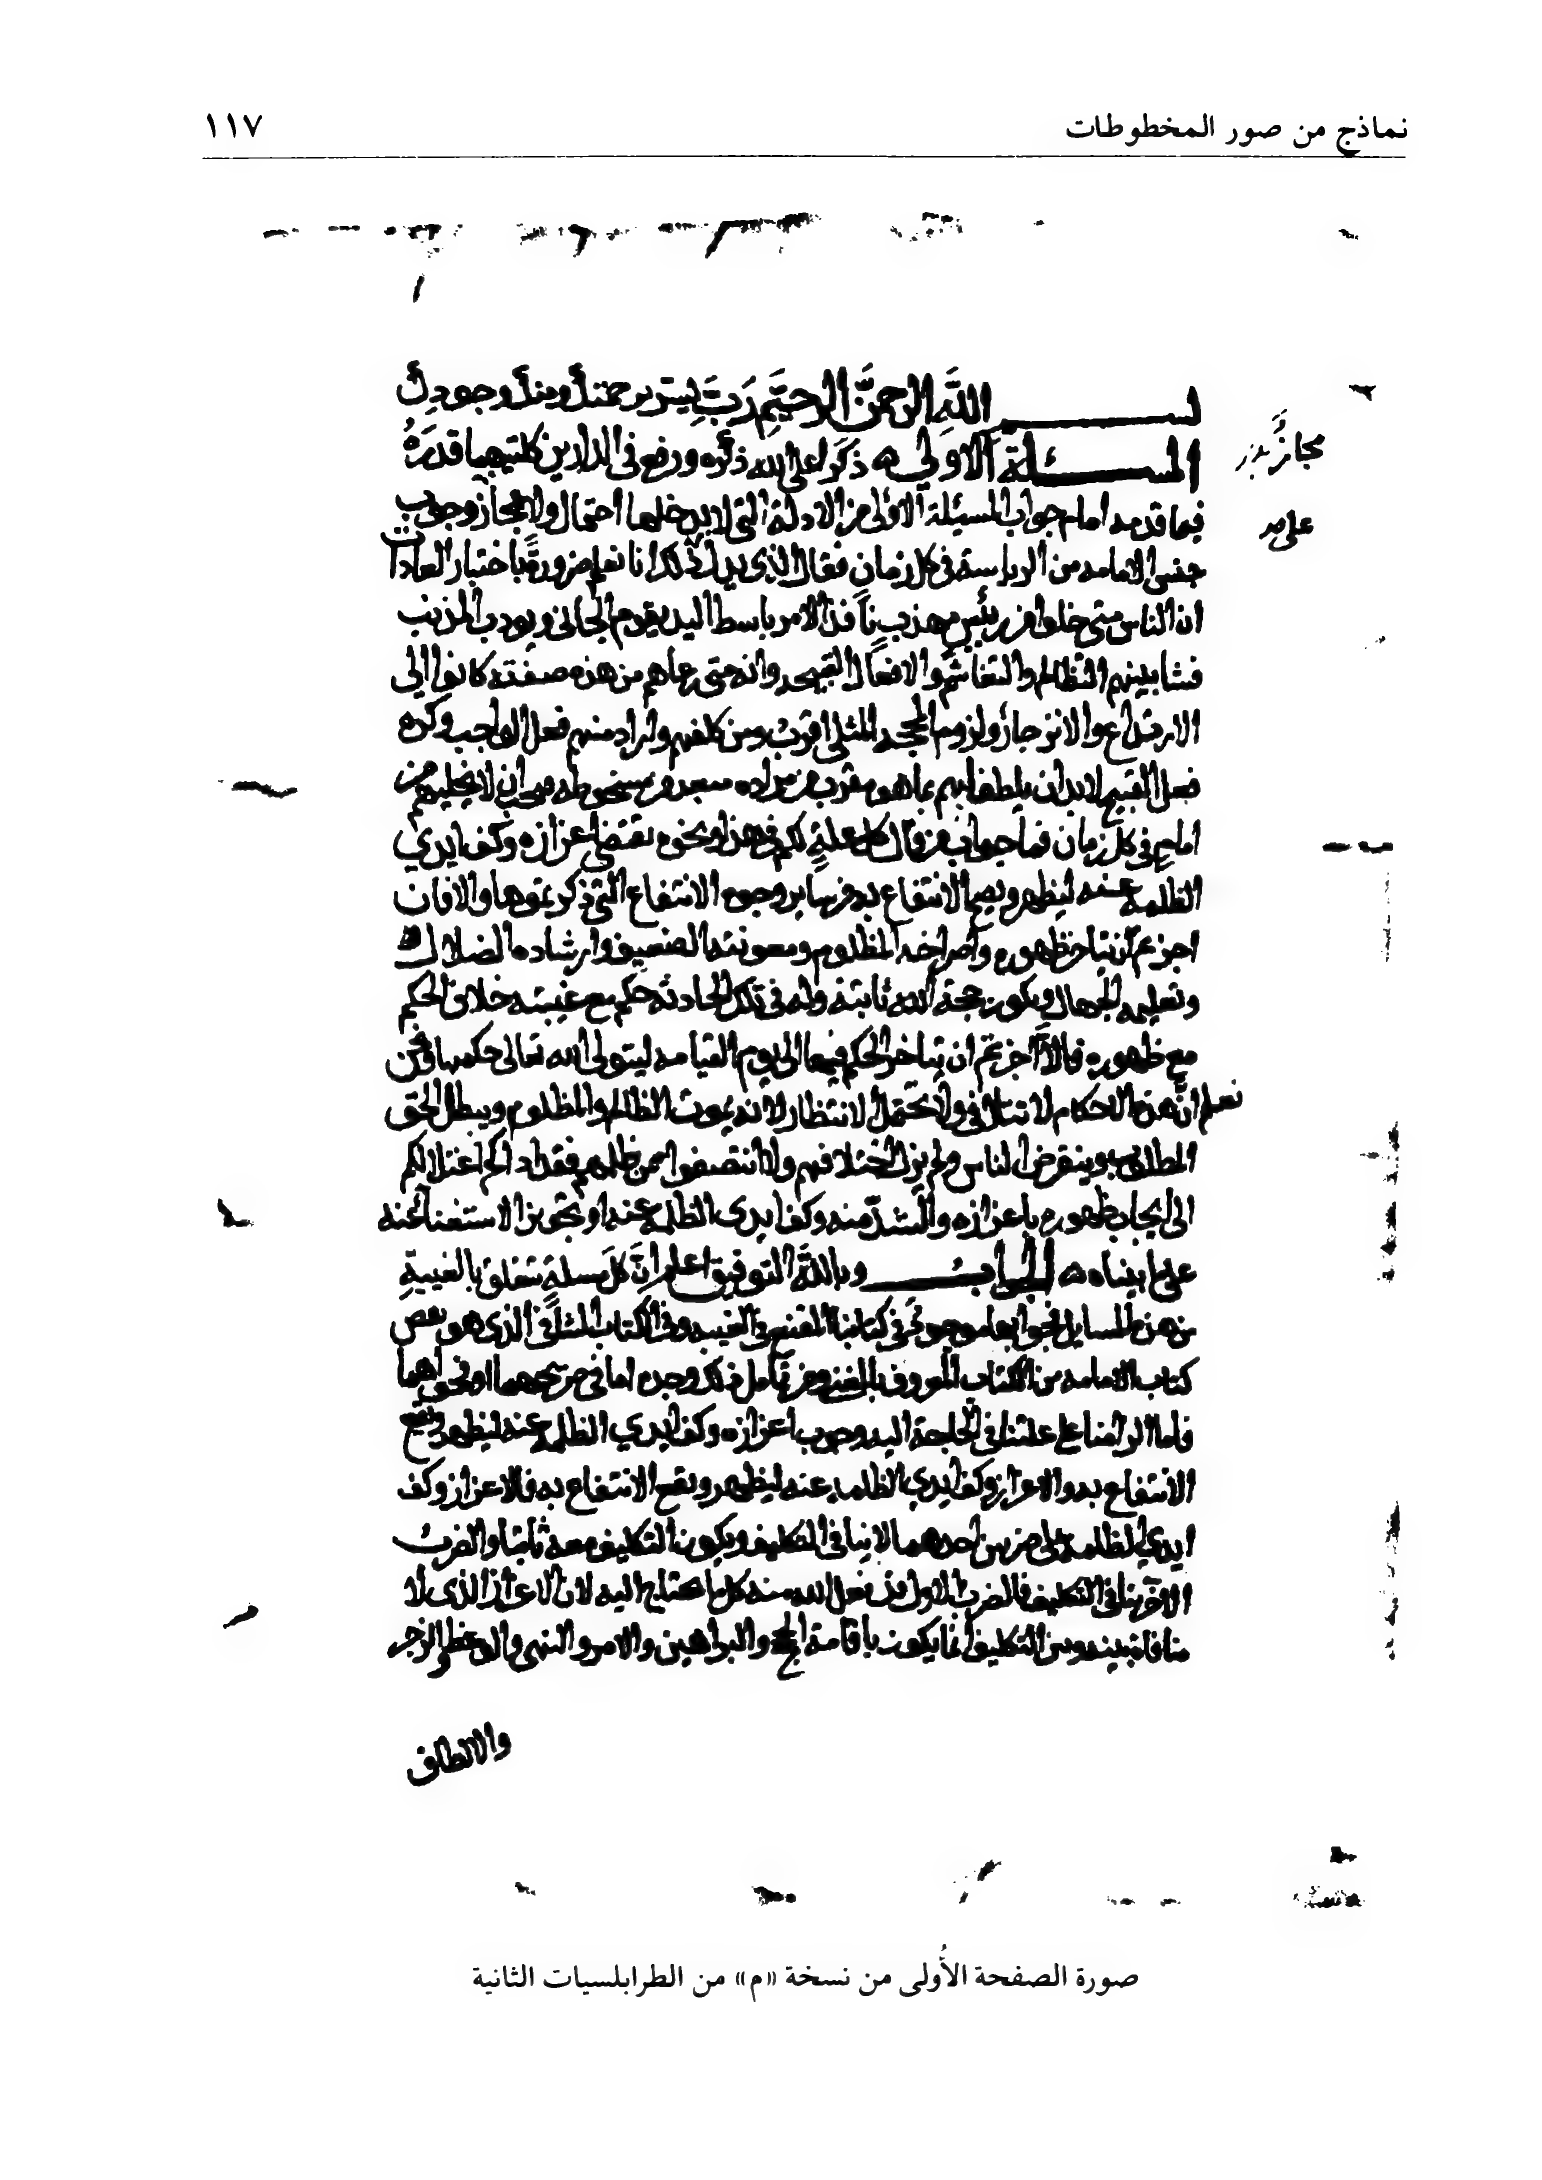 نماذج من صور المخطوطات ١١٧
بسم الله الرحمن الرحيم رب يسر برحمتك ومنك وجودك
المسئلة الاولى ذكر اعلى الله ذكره ورفع في الدارين كلتيهما قدره
فيما قدمه امام جواب المسئلة الاولى من الادلة التي لا يدخلها احتمال ولا مجاز وجوب
مجاز
جنس الامامه من الرياسة في كل زمان فقال الذي يدل على ذلك انا نعلم ضرورةً باختبار العادات
ان الناس متى خلوا من رئيس مهذب نافذ الامر باسط اليد يقوم الجاني ويودب المذنب
فشا بينهم التظالم والتغاشم والافعال القبيحه وانه متى رعاهم من هذه صفته كانوا الى
الارتداع والانزجار ولزوم المحجه المثلى اقرب ومن كلفهم واراد منهم فعل الواجب وكره
فعل القبيح لابد ان يلطف بهم بما هو مقرب من مراده مبعد من سخوطه فيجب ان لا يخليهم من
امام في كل زمان فما جواب من قال كل علة لكم في هذا ونحوه تقتضي اعزازه وكف ايدي
الظلمه عنه ليظهر ويصح الانتفاع به من ساير وجوه الانتفاع التي ذكرتموها والا فان
اجزتم ان يتاخر ظهوره واصراخه المظلوم ومعونته الضعيف وارشاده الضلال
وتعليمه الجهال ويكون حجة الله ثابتة وله في تلك الحادثه حكم مع غيبته خلاف الحكم
مع ظهوره فالا اجزتم ان يتاخر الحكم فيها الى يوم القيامه ليتولى الله تعالى حكمها ونحن
نعلم ان هذه الاحكام لا تتلافى ولا تحتمل الانتظار لانه يموت الظالم والمظلوم ويبطل الحق
المطلوب وينقرض الناس ولم يزل اختلافهم ولا انتصفوا ممن ظلمهم فقد اداكم اعتلالكم
الى ايجاب ظهوره باعزازه والشد منه وكف ايدى الظلمه عنه او تجويز الاستغناء عنه
على ما بيناه الجواب وبالله التوفيق اعلم ان كل مسلة تتعلق بالغيبة
من هذه المسايل فجوابها موجود في كتابنا المقنع في الغيبه وفي الكتاب الشافي الذي هو نقض
كتاب الامامه من الكتاب المعروف بالمغني ومن تامل ذلك وجده اما في صريحهما او فحواهما
فاما الزامنا على علتنا في الحاجة اليه وجوب اعزازه وكف ايدي الظلمه عنه ليظهر ويقع
الانتفاع به والاعزاز وكف ايدي الظلمه عنه ليظهر ويقع الانتفاع به فالاعزاز وكف
ايدي الظلمه على ضربين احدهما لا ينافي التكليف ويكون التكليف معه ثابتا والضرب
الاخر ينافي التكليف فالضرب الاول قد فعل الله منه كل ما يحتاج اليه لان الاعزاز الذي لا
منافاة بينه وبين التكليف انما يكون باقامة الحجج والبراهين والامر والنهي والوعظ والزجر
والالطاف
صورة الصفحة الأُولى من نسخة «م» من الطرابلسيات الثانية